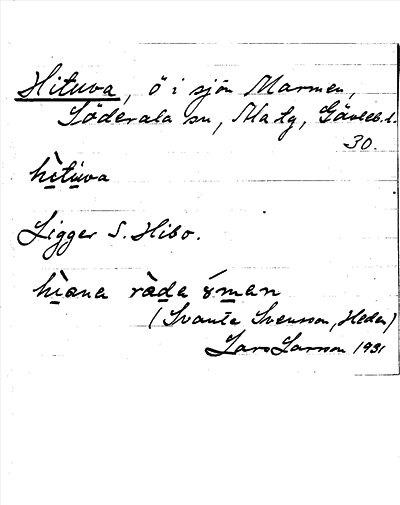 Hituva, ö i sjön Marmen,
Söderala sn, Ma tg, Gävleb. l.
30.
hìtu̇va
Ligger S. Hibo.
(Svante Svensson, Heden)
Lars Larsson 1931